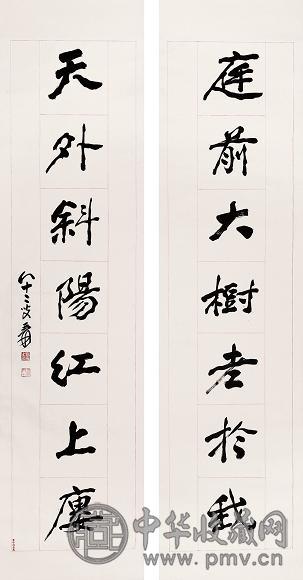 庭前大樹老於我
天外斜陽紅上廔
八十二叟爰
中华收藏网
www.pmv.cn